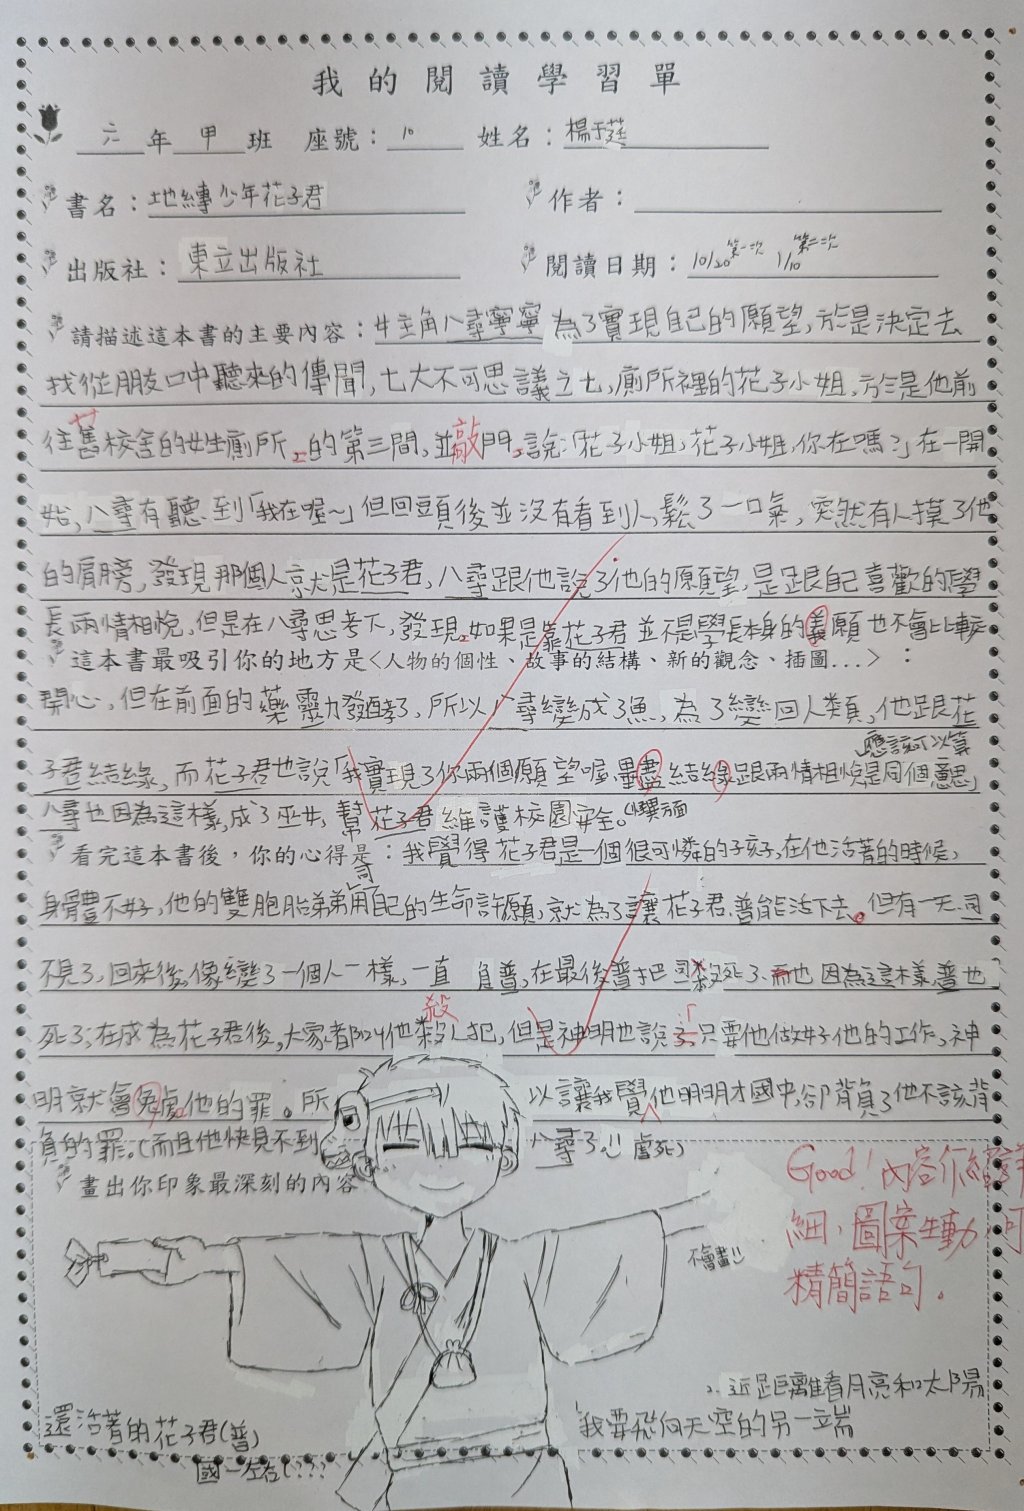 我的閱讀學習單
六年甲班 座號：10 姓名：楊于
書名：地縛少年花子君 作者：
出版社：東立出版社 閱讀日期：10/20第一次 1/10第二次
請描述這本書的主要內容：女主角八尋寧寧為了實現自己的願望，於是決定去
找從朋友口中聽來的傳聞，七大不可思議之七，廁所裡的花子小姐，於是他前
往舊校舍的女生廁所，的第三間，並敲門，說：「花子小姐，花子小姐，你在嗎？」在一開
始，八尋有聽到「我在喔～」但回頭後並沒有看到人，鬆了一口氣，突然有人摸了他
的肩膀，發現那個人就是花子君，八尋跟他說了他的願望，是跟自己喜歡的學
長兩情相悅，但是在八尋思考下，發現，如果是靠花子君並不是學長本身的義願也不會比較
這本書最吸引你的地方是<人物的個性、故事的結構、新的觀念、插圖...>：
開心，但在前面的藥靈力發酵了，所以八尋變成了漁，為了變回人類，他跟花
「應該可以算
子君結緣，而花子君也說「我實現了你兩個願望喔，畢盡結緣跟兩情相悅是同個意思」
八尋也因為這樣，成了巫女，幫花子君維護校園安全。
看完這本書後，你的心得是：我覺得花子君是一個很可憐的孩子，在他活著的時候，
身體不好，他的雙胞胎弟弟司用自己的生命許願，就為了讓花子君，普能活下去。但有一天，司
不見了，回來後，像變了一個人一樣，一直 普，在最後普把司殺死了，而也因為這樣，普也
死了，在成為花子君後，大家都叫他殺人犯，但是神明也說，「只要他做好他的工作，神
殺
明就會免處他的罪。所以讓我覺他明明才國中，卻背負了他不該背
負的罪。(而且他快見不到八尋了!! 虐死)
畫出你印象最深刻的內容
Good！內容介紹詳
細，圖案生動，可
精簡語句。
不會畫!!
2. 近距離看月亮和太陽
還活著的花子君(普)
我要飛向天空的另一端
國一左右(???